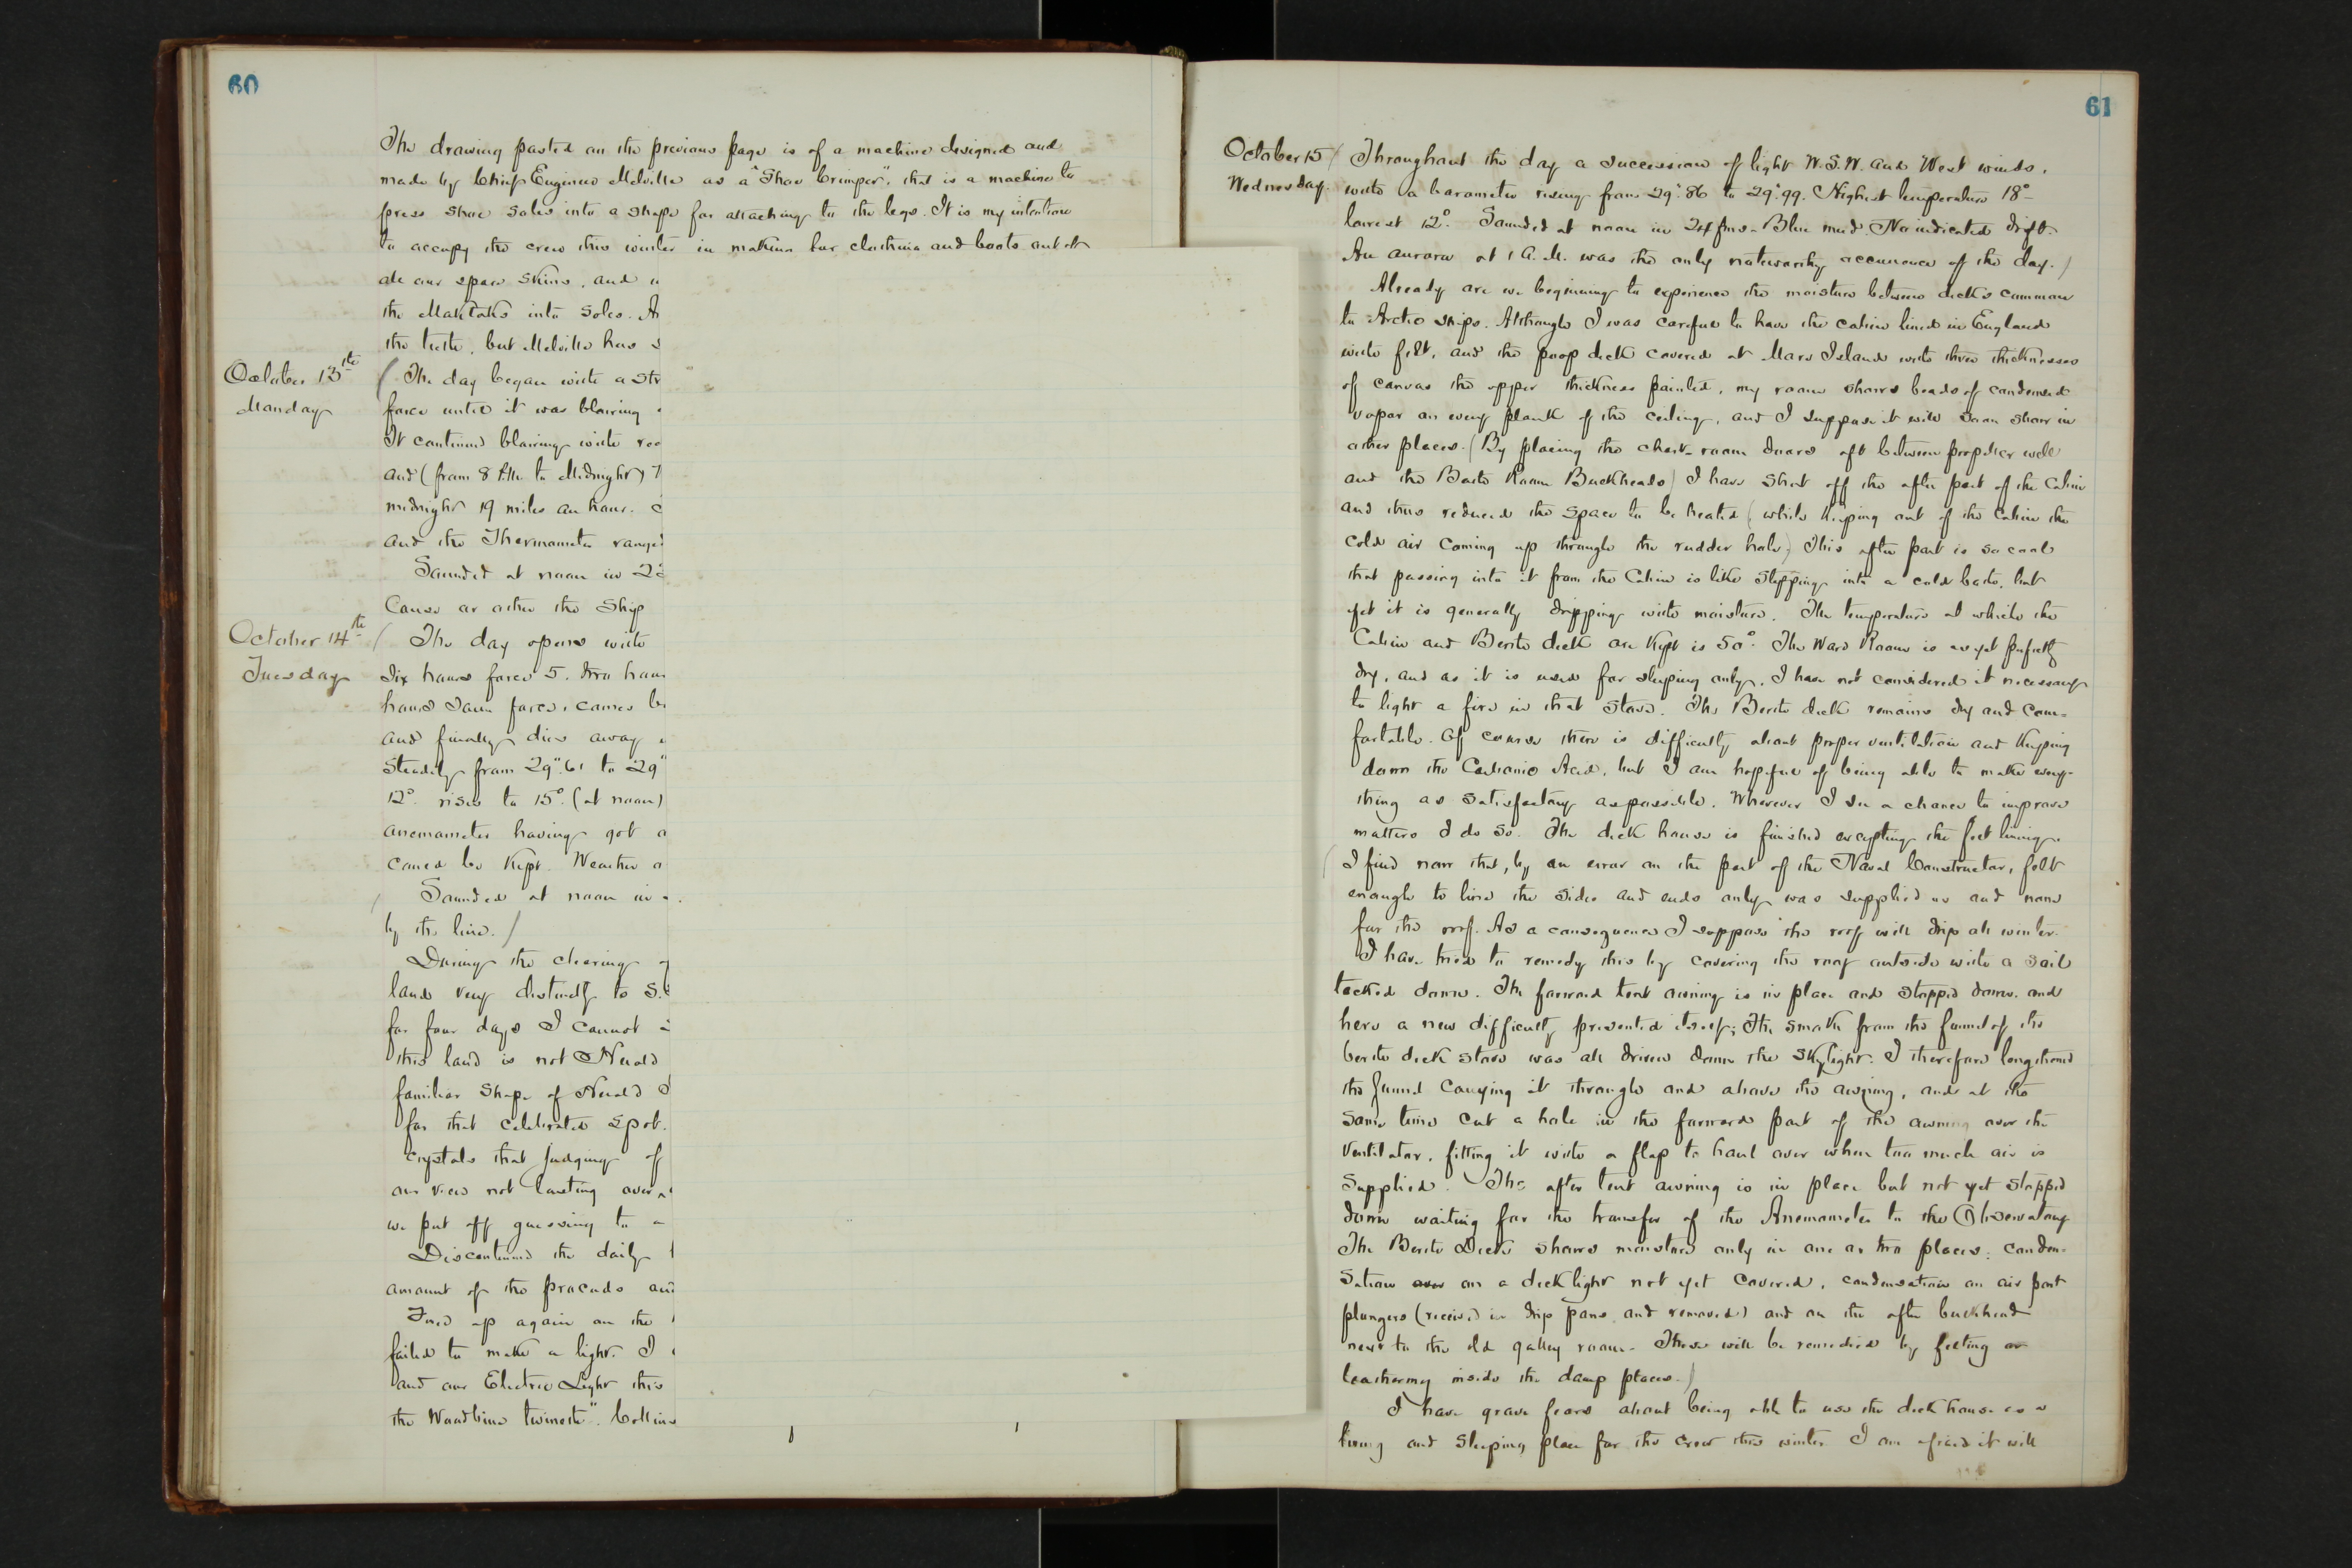 60
The drawing pasted on the previous page is of a machine designed and
made by Chief Engineer Melville as a "Shoe Crimper", that is a machine to
press shoe soles into a shape for attaching to the legs. It is my intention
to occupy the crew this winter in making fur clothing and boots out of
all our spare skins, and
the Makloks into soles.
the teeth, but Melville has
October 13th
Monday
The day began with a
force until it was blowing
It continued blowing with
and (from 8 P.M. to Midnight)
midnight 19 miles an hour.
and the Thermometer
Sounded at noon in
Cause or other the Ship
October 14th
Tuesday
The day opens with
Six hours force 5. two
hours same force, comes
and finally dies away
Steadily from 29".61 to 29"
12° rises to 15° (at noon)
anemometer having got
could be kept. Weather
Sounded at noon in
by the line.
During the clearing
land very distinctly to S.
for four days I cannot
this land is not Herald
familiar shape of Herald
for that celebrated spot.
crystals that judging of
our view not lasting over
we put off guessing to a
Discontinued the daily
amount of the proceeds and
Fired up again on the
failed to make a light. I
and our Electric Light this
the Woodbine twineth". Collins
61
October 15
Wednesday.
Throughout the day a succession of light W.S.W. and West winds,
with a barometer rising from 29".86 to 29".99. Highest temperature 18°
lowest 12°. Sounded at noon in 24 fms - Blue mud. No indicated drift.
An aurora at 1 A.M. was the only noteworthy occurrence of the day.)
Already are we beginning to experience the moisture between decks common
to Arctic ships. Although I was careful to have the cabin lined in England
with felt, and the poop deck covered at Mare Island with three thicknesses
of canvas the upper thickness painted, my room shows beads of condensed
vapor on every plank of the ceiling, and I suppose it will soon show in
other places. (By placing the chart-room doors aft between propeller well
and the Bath Room Buckheads) I have shut off the after part of the Cabin
and thus reduced the space to be heated (while keeping out of the Cabin the
cold air coming up through the rudder hole). This after part is so cool
that passing into it from the Cabin is like stepping into a cold bath, but
yet it is generally dripping with moisture. The temperature at which the
Cabin and Berth deck are kept is 50°. The Ward Room is as yet perfectly
dry, and as it is used for sleeping only, I have not considered it necessary
to light a fire in that stove. The Berth deck remains dry and com-
fortable. Of course there is difficulty about proper ventilation and keeping
down the Carbonic Acid, but I am hopeful of being able to make every-
thing as satisfactory as possible. Wherever I see a chance to improve
matters I do so. The deck house is finished excepting the felt lining.
(I find now that, by an error on the part of the Naval Constructor, felt
enough to line the sides and ends only was supplied us and none
for the roof. As a consequence I suppose the roof will drip all winter.
I have tried to remedy this by covering the roof outside with a sail
tacked down. The forward tent awning is in place and stopped down. and
here a new difficulty presented itself; The smoke from the funnel of the
berth deck stove was all driven down the skylight. I therefore lengthened
the funnel carrying it through and above the awning, and at the
same time cut a hole in the forward part of the awning over the
Ventilator, fitting it with a flap to haul over when too much air is
supplied. The after tent awning is in place but not yet stopped
down waiting for the transfer of the Anemometer to the Observatory
The Berth Deck shows moisture only in one or two places: conden-
sation on a deck light not yet covered, condensation on air port
plungers (received in drip pans and removed) and on the after buckhead
next to the old galley room. These will be remedied by felting or
leathering inside the damp places.)
I have grave fears about being able to use the deck house as a
living and sleeping place for the crew this winter. I am afraid it will